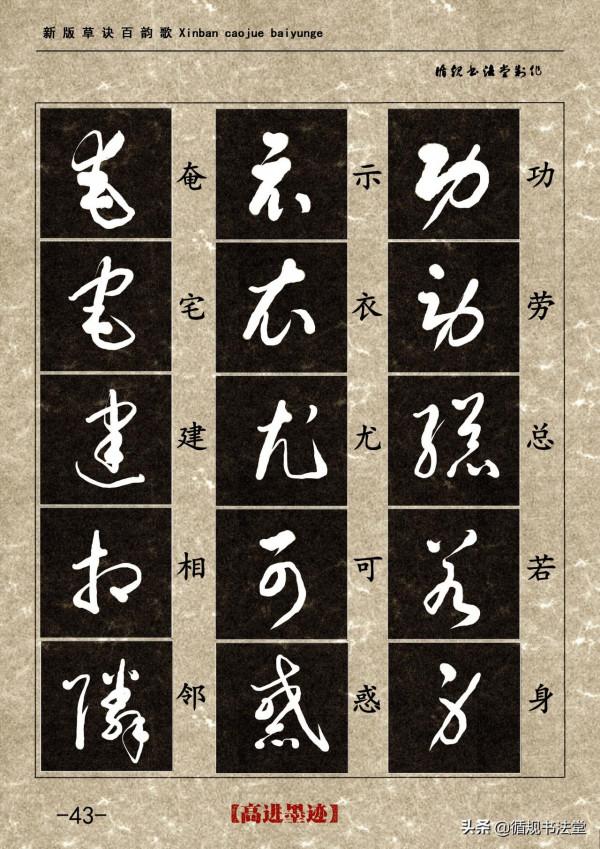 新版草诀百韵歌 Xinban caojue baiyunge
循规书法堂制作
功劳总若身
示衣尤可惑
奄宅建相邻
-43-
【高进墨迹】
头条 @循规书法堂